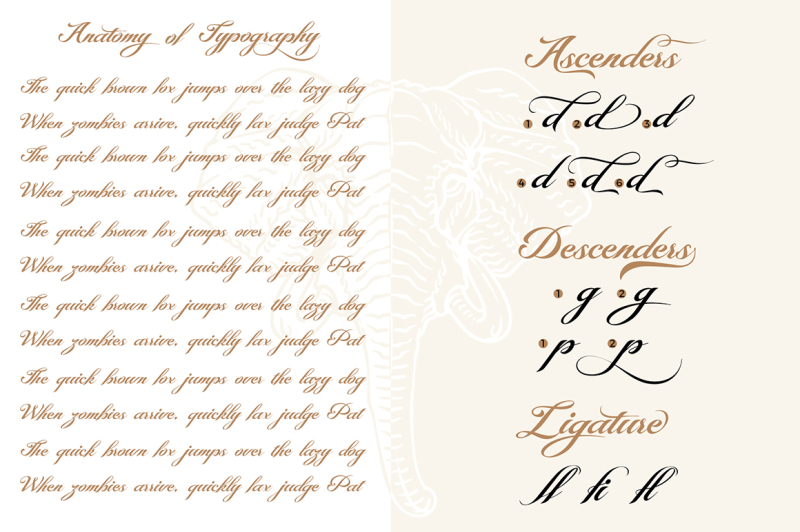 Anatomy of Typography
The quick brown fox jumps over the lazy dog
When zombies arrive, quickly fax judge Pat
The quick brown fox jumps over the lazy dog
When zombies arrive, quickly fax judge Pat
The quick brown fox jumps over the lazy dog
When zombies arrive, quickly fax judge Pat
The quick brown fox jumps over the lazy dog
When zombies arrive, quickly fax judge Pat
The quick brown fox jumps over the lazy dog
When zombies arrive, quickly fax judge Pat
The quick brown fox jumps over the lazy dog
When zombies arrive, quickly fax judge Pat
Ascenders
1 d 2 d 3 d
4 d 5 d 6 d
Descenders
1 g 2 g
1 p 2 p
Ligature
ff fi fl